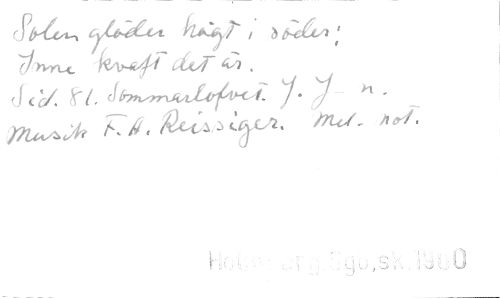 Solen glöder högt i söder;
Inne kvaft det är.
Sid. 81. Sommarlofvet. J. J–n.
Musik F. A. Reissiger. Mel. not.
Sgb,sk.1900